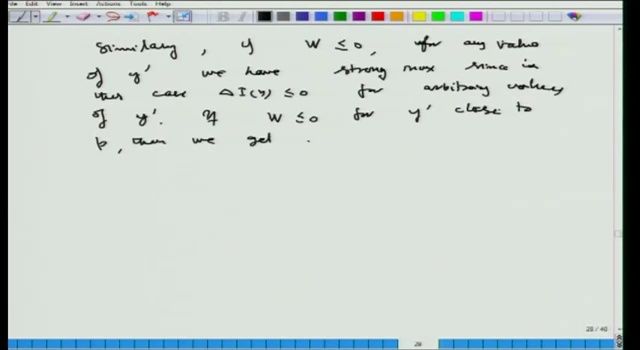 View Insert Actions Tools Help
Similary, if W ≤ 0, for any value
of y' we have strong max since in
this case ΔI(y) ≤ 0 for arbitrary values
of y'. If W ≤ 0 for y' close to
p, then we get
28 / 40
28